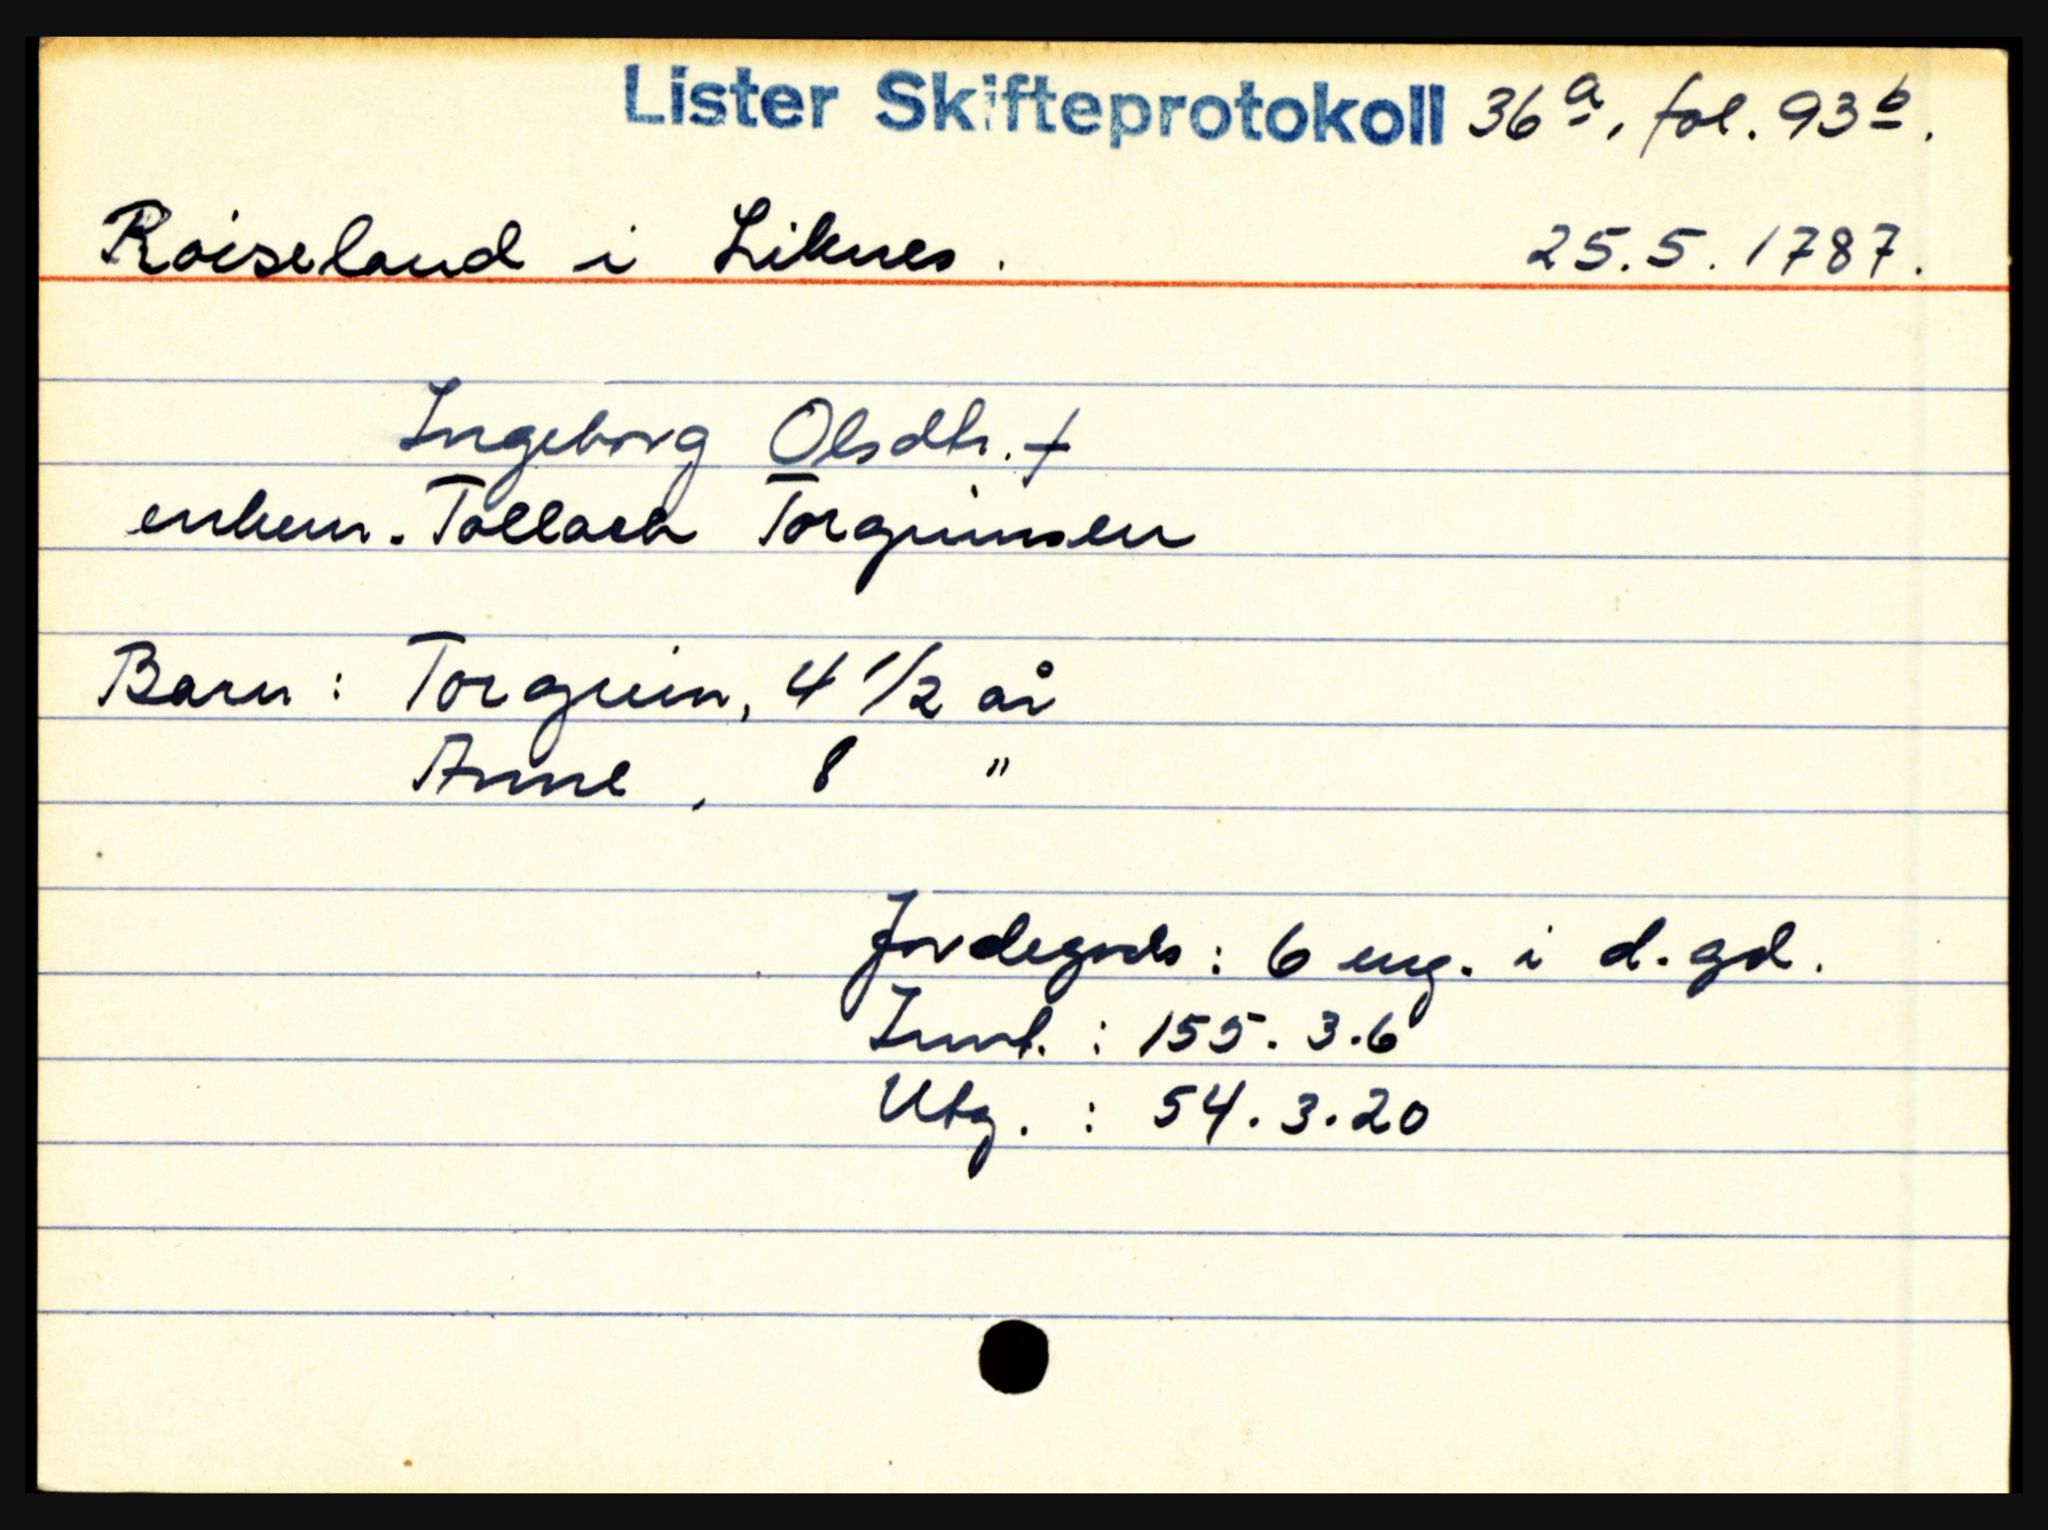 Lister Skifteprotokoll 36a, fol. 93b.
Roiseland i Liknes. 25.5.1787.
Ingeborg Olsdtr. †
enkem. Tollach Torgrimsen
Barn: Torgrim, 4 1/2 år
Anne, 8 "
Jordegods: 6 eng. i d. gd.
Innt.: 155.3.6
Utg.: 54.3.20